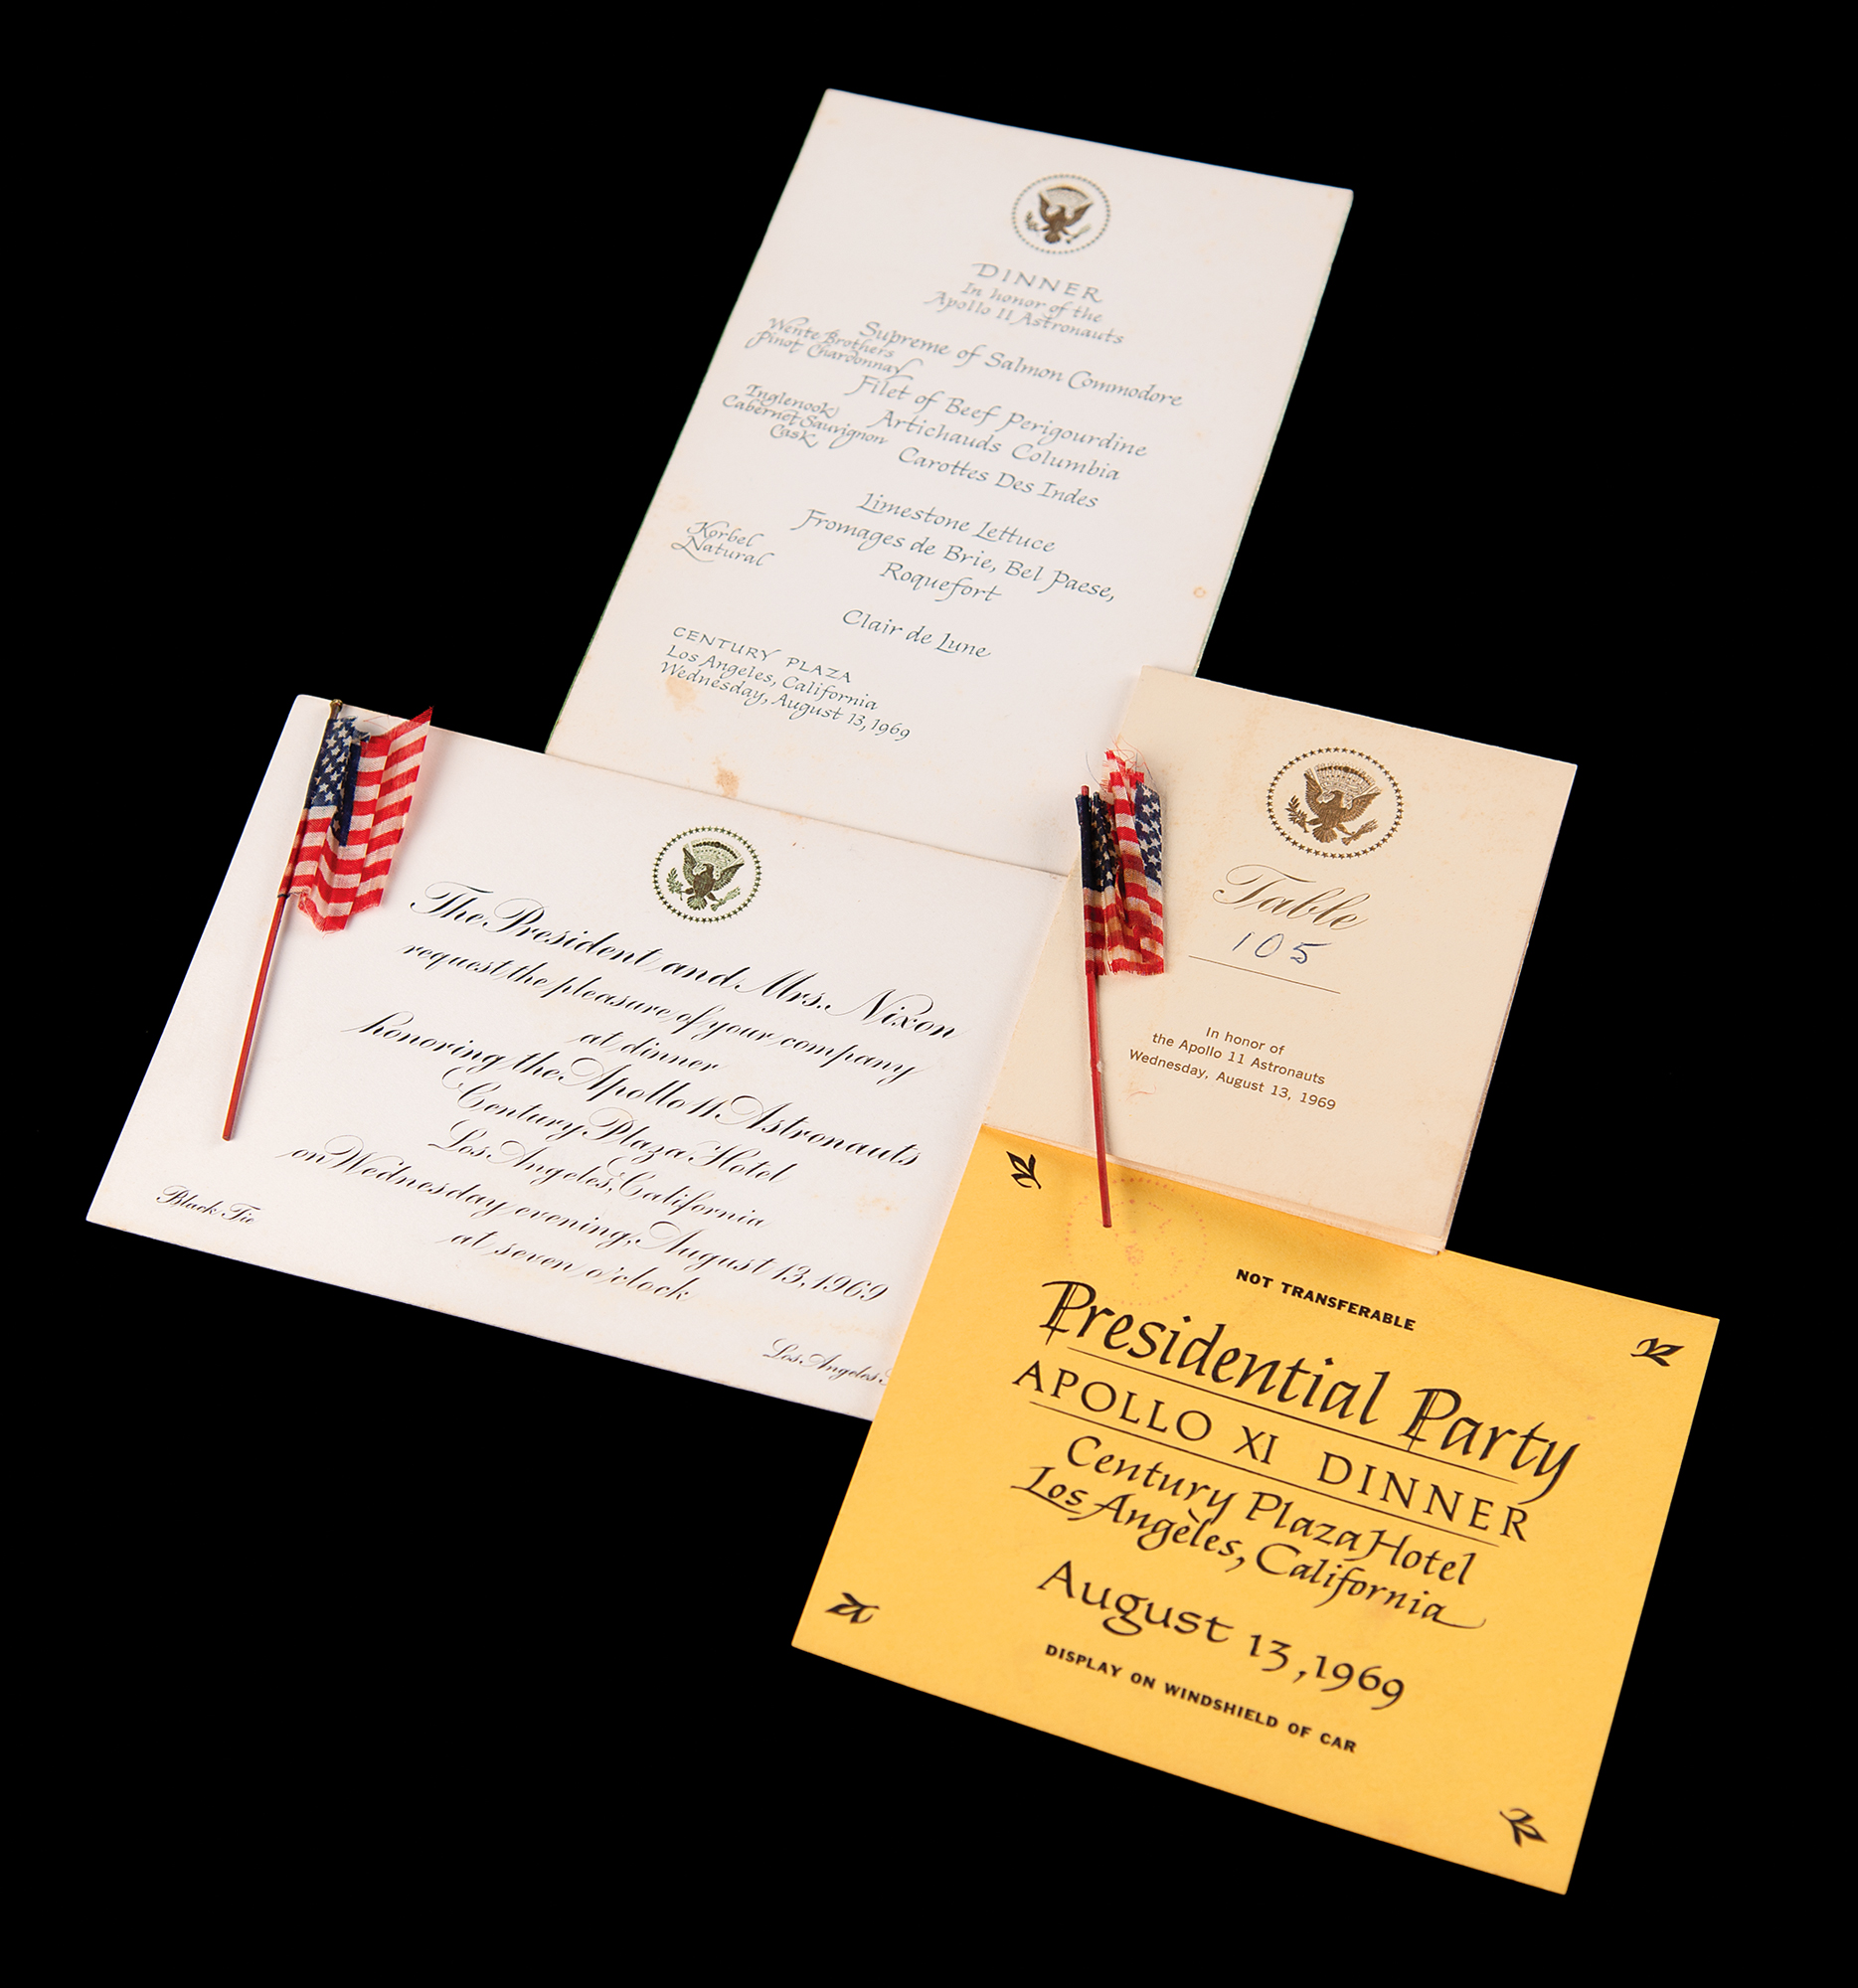 DINNER
In honor of the
Apollo 11 Astronauts
Wente Brothers
Pinot Chardonnay
Supreme of Salmon Commodore
Inglenook
Cabernet Sauvignon
Cask
Filet of Beef Perigourdine
Artichauds Columbia
Carottes Des Indes
Limestone Lettuce
Korbel
Natural
Fromages de Brie, Bel Paese,
Roquefort
Clair de Lune
CENTURY PLAZA
Los Angeles, California
Wednesday, August 13, 1969
The President and Mrs. Nixon
request the pleasure of your company
at dinner
honoring the Apollo 11 Astronauts
Century Plaza Hotel
Los Angeles, California
on Wednesday evening, August 13, 1969
at seven o'clock
Black Tie
Los Angeles
Table
105
In honor of
the Apollo 11 Astronauts
Wednesday, August 13, 1969
NOT TRANSFERABLE
Presidential Party
APOLLO XI DINNER
Century Plaza Hotel
Los Angeles, California
August 13, 1969
DISPLAY ON WINDSHIELD OF CAR